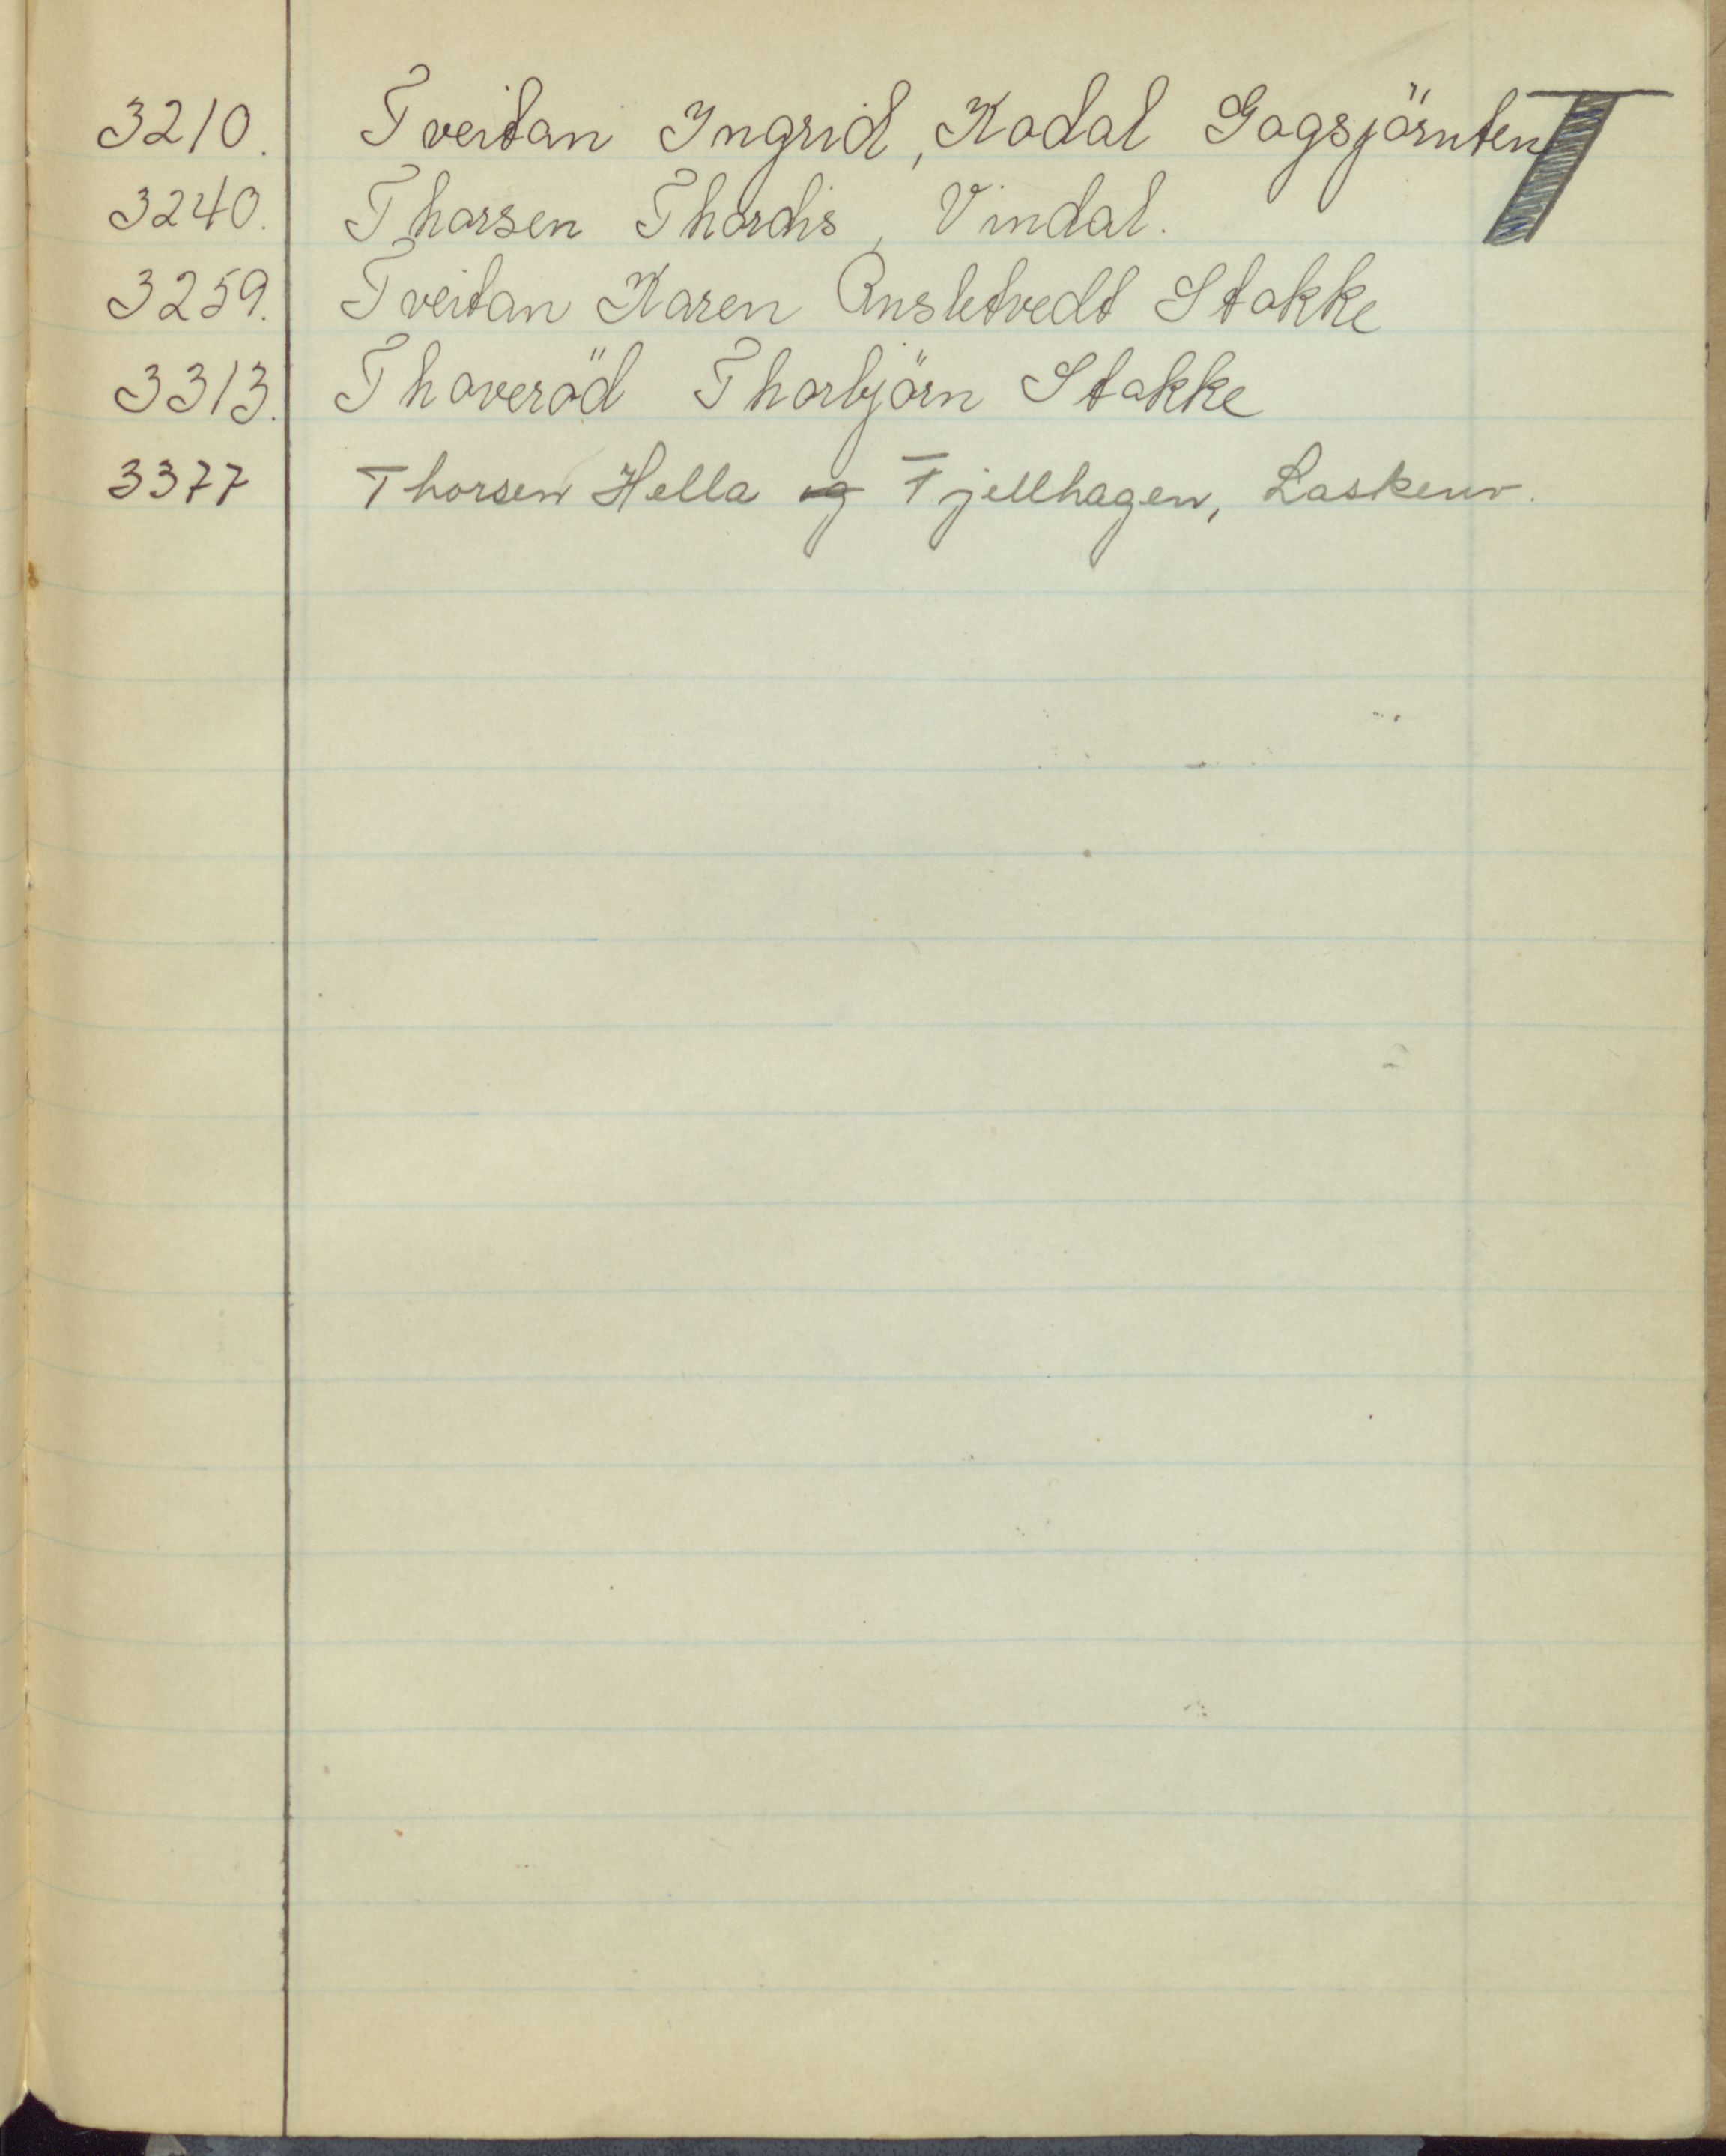 T
3210. Tveitan Ingrid, Kodal Gogsjörnten
3240. Thorsen Thordis, Vindal.
3259. Tveitan Karen Ansletvedt Stokke
3313. Thoveröd Thorbjörn Stokke
3377 Thorsen Hella og Fjellhagen, Laskenv.